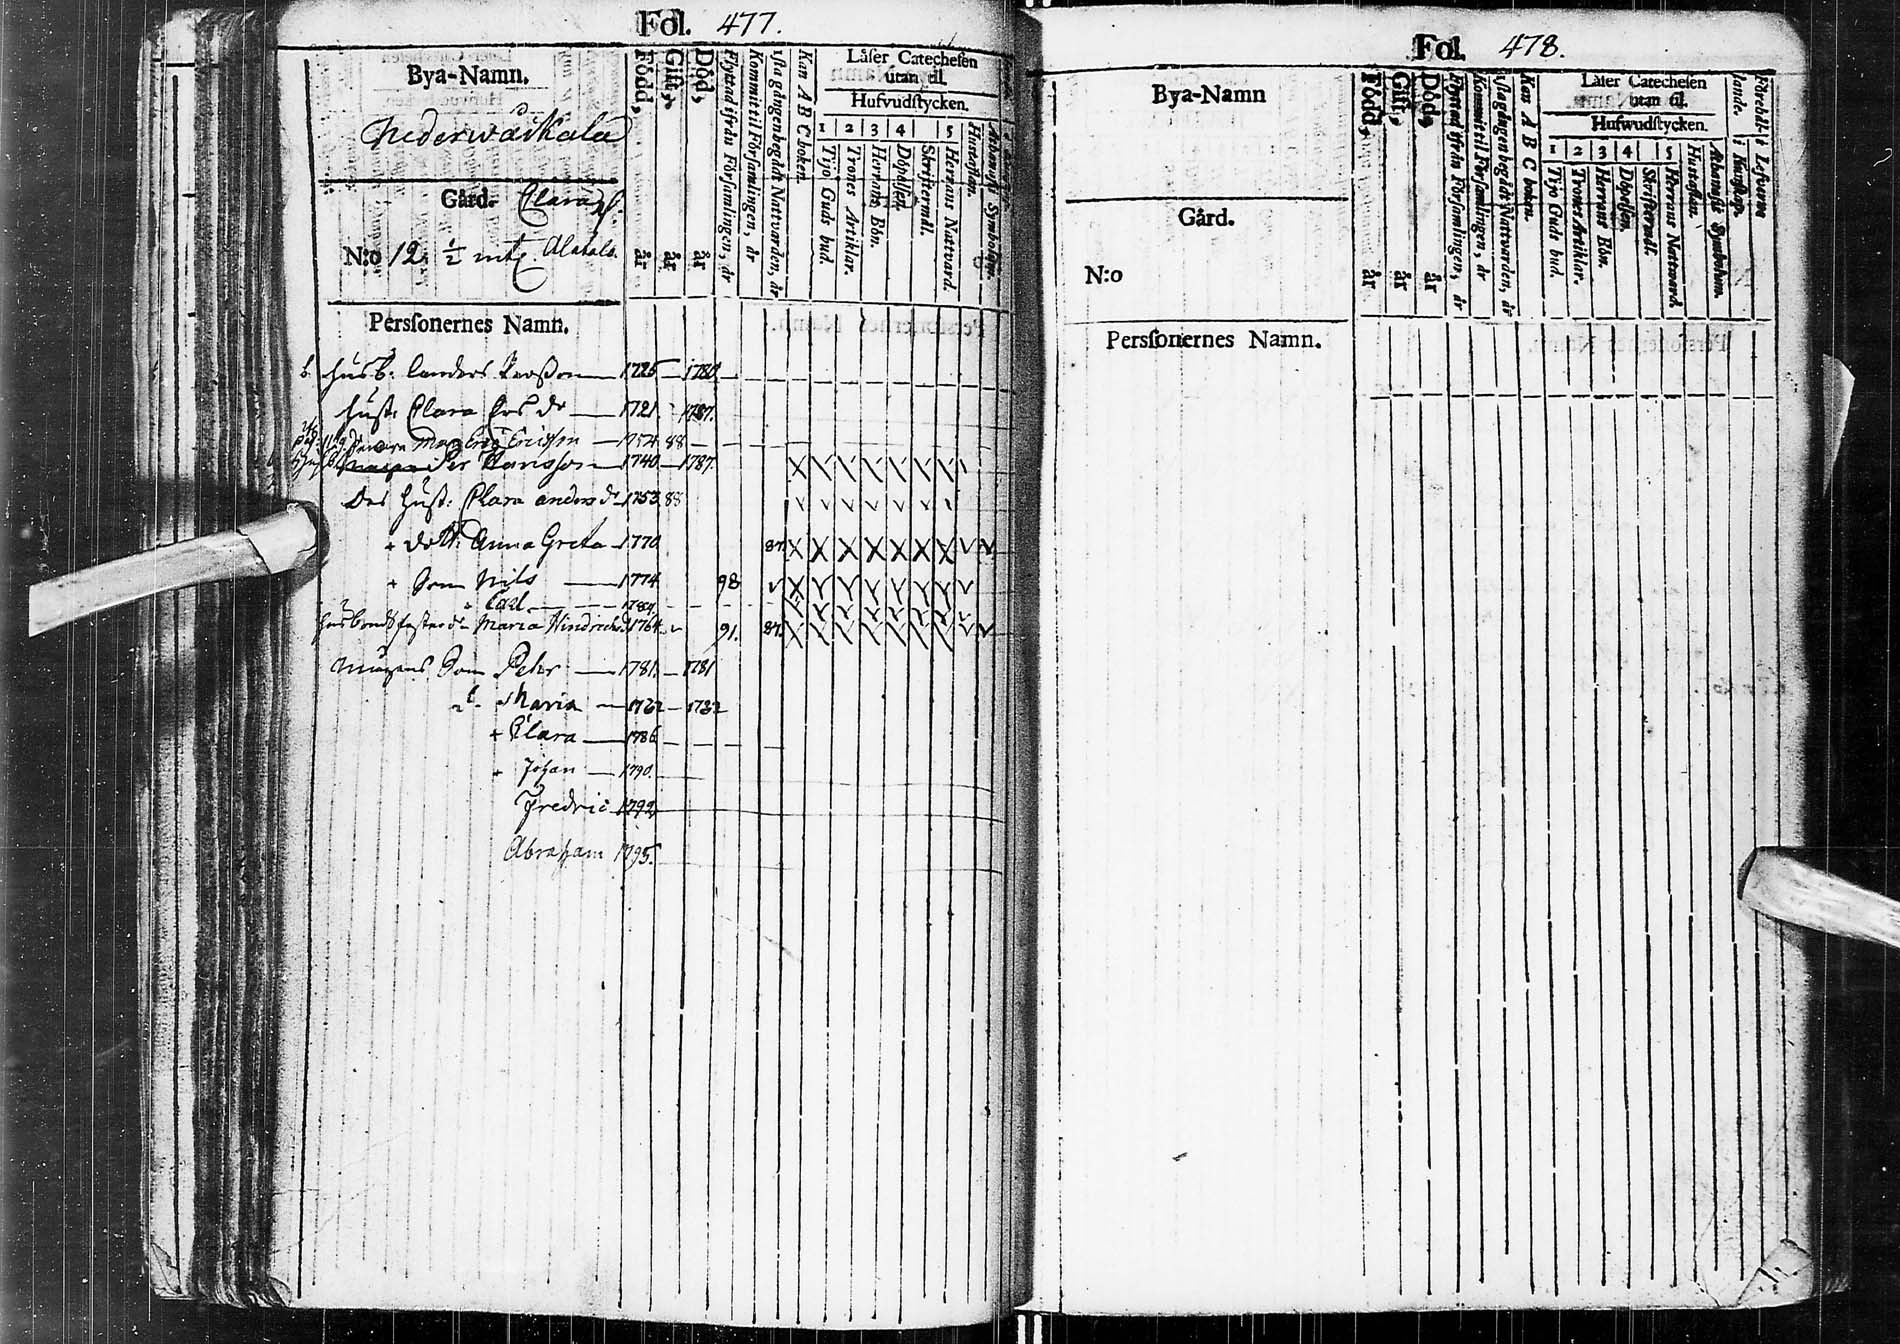 Fol. 477.
Bya-Namn.
Nederwäikala
Gård. Clara
N:o 12. ½ mtl Alatalo.
Född, år
Gift, år
Död, år
Flyttad ifrån Församlingen, år
Kommit til Församlingen, år
1sta gången begått Nattvarden, år
Kan A B C boken.
Låſer Catecheſen
utan til.
Hufvudſtycken.
1 2 3 4 5
Tijo Guds bud.
Trones Artiklar.
Herrans Bön.
Döpelſen.
Skriftermål.
Herrans Nattvard.
Hustaflan.
Athanaſii Symbolum.
Perſonernes Namn.
b. Husb. Anders 1725 — 1780
Hust. Clara 1721 — 1787.
Mag Eric Ericsson — 1754 88
Per Hansson — 1740 — 1787.
Des Hust: Clara anders dr 1753 88
+ dott. Anna Greta — 1770 87
+ Son Nils — 1774 98
Carl 1784
Maria Hindrichsd 1764 91. 87.
Mågens Son Peter — 1781. — 1781
d. Maria — 1782 — 1782
+ Clara — 1786
+ Johan — 1790.
Fredric 1792
Abraham 1795.
Fol. 478.
Bya-Namn
Gård.
N:o
Född, år
Gift, år
Död, år
Flyttad ifrån Förſamlingen, år
Kommit til Förſamlingen, år
1ſta gången begått Nattvarden, år
Kan A B C boken.
Låſer Catecheſen
utan til.
Hufwudſtycken.
1 2 3 4 5
Tijo Guds bud.
Trones Artiklar.
Herrans Bön.
Döpelſen.
Skriftermål.
Herrans Nattvard.
Hustaflan.
Athanaſii Symbolum.
Perſonernes Namn.